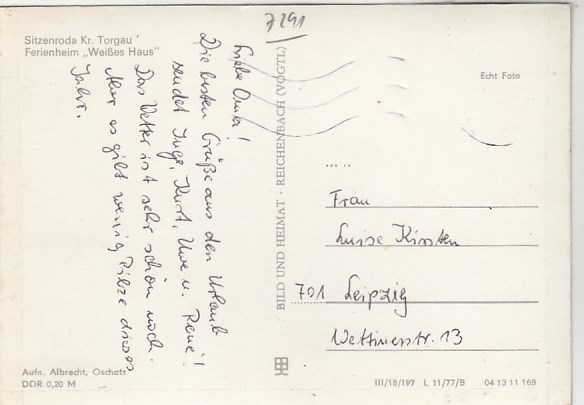 7291
Sitzenroda Kr. Torgau
Ferienheim „Weißes Haus"
Liebe Oma!
Die besten Grüße aus den Urlaub
sendet Inge, Kurt, Uwe u. René!
Das Wetter ist sehr schön noch.
Nur es gibt wenig Pilze dieses
Jahr.
Aufn. Albrecht, Oschatz
DDR 0,20 M
BILD UND HEIMAT · REICHENBACH (VOGTL)
Echt Foto
Frau
Luise Kirsten
701 Leipzig
Wettinerstr. 13
III/18/197 L 11/77/B 04 13 11 169